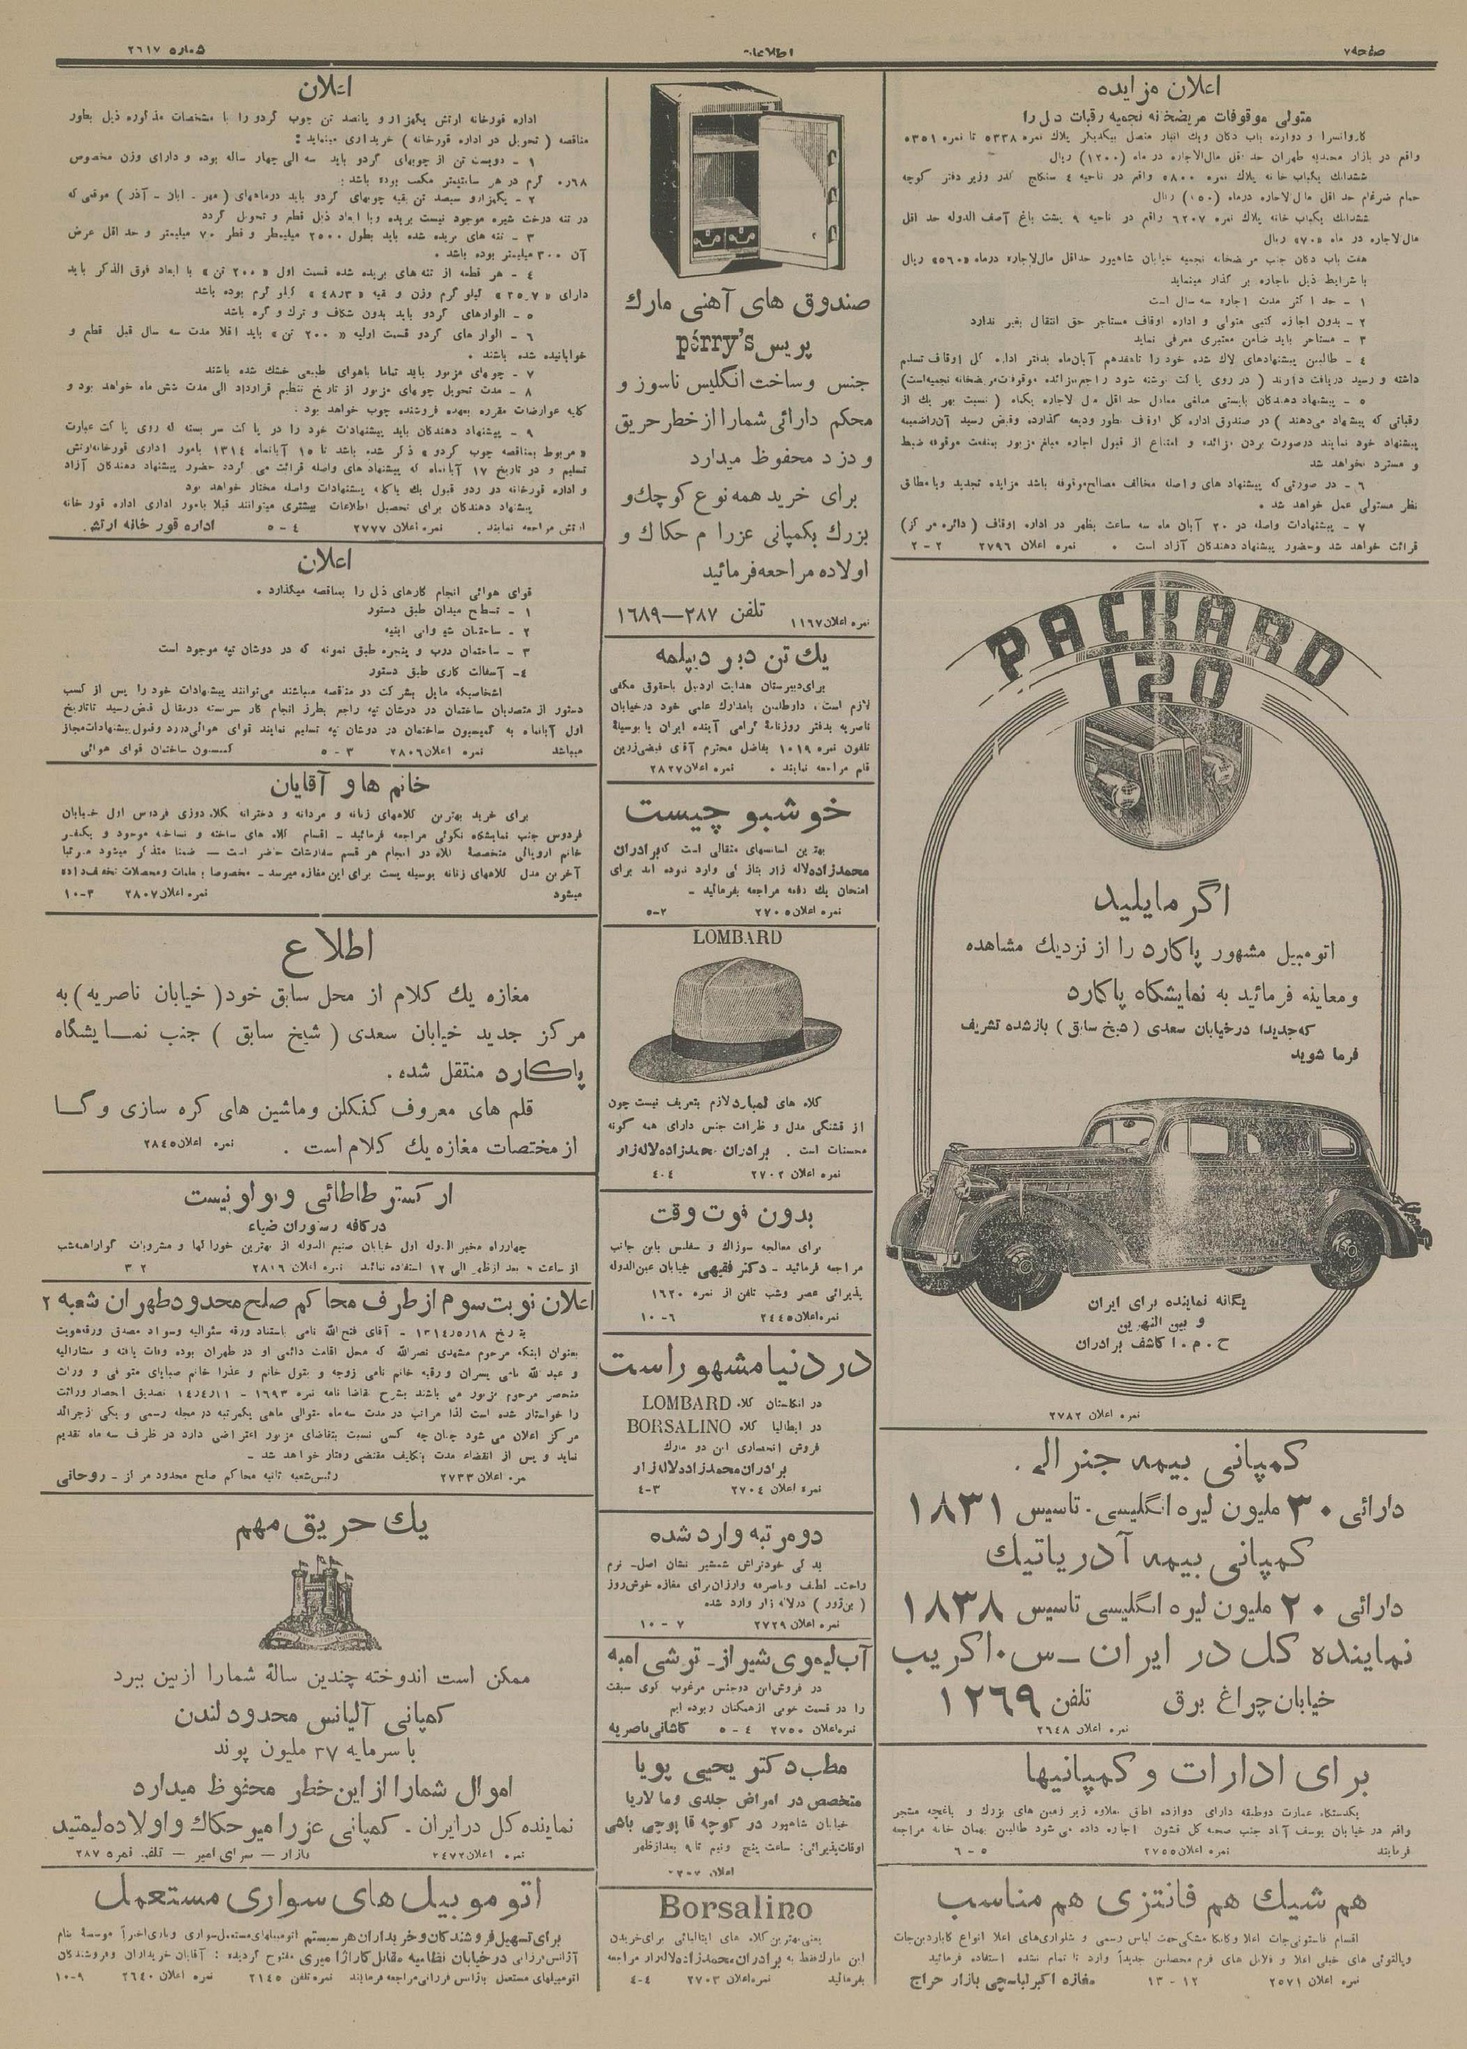 صفحه ۷
اطلاعات
شماره ۲۶۱۷
اعلان مزایده
متولی موقوفات مریضخانه نجمیه رقبات ذیل را
کاروانسرا و دوازده باب دکان ویک انبار متصل بیکدیگر پلاک نمره ۵۳۳۸ تا نمره ۵۳۵۱
واقع در بازار محمدیه طهران حد اقل مال‌الاجاره در ماه (۱۲۰۰) ریال
ششدانگ یکباب خانه پلاک نمره ۵۸۰۰ واقع در ناحیه ٤ سنگلج گذر وزیر دفتر کوچه
حمام ضرغام حد اقل مال لاجاره درماه (۱۵۰) ریال
ششدانگ یکباب خانه پلاک نمره ۶۲۰۷ واقع در ناحیه ۹ پشت باغ آصف الدوله حد اقل
مال لاجاره در ماه «۷۰» ریال
هفت باب دکان جنب مریضخانه نجمیه خیابان شاهپور حداقل مال‌لاجاره درماه «۵۶۰» ریال
با شرایط ذیل باجاره بر گذار مینماید
۱ - حد اکثر مدت اجاره سه سال است
۲ - بدون اجازه کتبی متولی و اداره اوقاف مستاجر حق انتقال بغیر ندارد
۳ - مستاجر باید ضامن معتبری معرفی نماید
٤ - طالبین پیشنهادهای لاک شده خود را تاهفدهم آبان‌ماه بدفتر اداره کل اوقاف تسلیم
داشته و رسید دریافت دارند ( در روی پاکت نوشته شود راجع‌بمزایده موقوفات‌مریضخانه نجمیه‌است)
۵ - پیشنهاد دهندگان بایستی مبلغی معادل حد اقل مال لاجاره یکماه ( نسبت بهر یک از
رقباتی که پیشنهاد می‌دهند ) در صندوق اداره کل اوقاف بطور ودیعه گذارده وقبض رسید آن‌راضمیمه
پیشنهاد خود نمایند درصورت بردن مزائده و امتناع از قبول اجاره مبلغ مزبور بمنفعت موقوفه ضبط
و مسترد نخواهد شد
۶ - در صورتی‌که پیشنهاد های واصله مخالف مصالح‌موقوفه باشد مزایده تجدید ویا مطابق
نظر مستولی عمل خواهد شد.
۷ - پیشنهادات واصله در ۲۰ آبان ماه سه ساعت بظهر در اداره اوقاف (دائره مرکز)
قرائت خواهد شد وحضور پیشنهاد دهندگان آزاد است . نمره اعلان ۲۷۹۶ ۲ - ۲
PACKARD
120
اگر مایلید
اتومبیل مشهور پاکارد را از نزدیک مشاهده
ومعاینه فرمائید به نمایشگاه پاکارد
که‌جدیدا در خیابان سعدی ( شیخ سابق ) بازشده تشریف
فرما شوید
یگانه نماینده برای ایران
و بین النهرین
ح . م . ا کاشف برادران
نمره اعلان ۲۷۸۲
کمپانی بیمه جنرالی .
دارائی ۳۰ ملیون لیره انگلیسی . تاسیس ۱۸۳۱
کمپانی بیمه آدریاتیک
دارائی ۲۰ ملیون لیره انگلیسی تاسیس ۱۸۳۸
نماینده کل در ایران - س . اکریب
خیابان چراغ برق تلفن ۱۲۶۹
نمره اعلان ۲۶۴۸
برای ادارات و کمپانیها
یکدستگاه عمارت دوطبقه دارای دوازده اطاق بعلاوه زیر زمین های بزرگ و باغچه مشجر
واقع در خیابان یوسف آباد جنب صحیه کل قشون اجاره داده می شود طالبین بهمان خانه مراجعه
فرمایند نمره اعلان ۲۷۵۵ ۵ - ۶
هم شیک هم فانتزی هم مناسب
اقسام فاستونی‌جات اعلا وکانکا مشکی‌جهت لباس رسمی و شلواری‌های اعلا انواع کاباردین‌جات
وپالتوئی های خیلی اعلا و فلانل های فرم محصلین جدیداً وارد تا تمام نشده استفاده فرمائید
نمره اعلان ۲۵۷۱ ۱۲ - ۱۳ مغازه اکبرلباسچی بازار حراج
صندوق های آهنی مارک
پریس pérry's
جنس و ساخت انگلیس ناسوز و
محکم دارائی شمارا از خطر حریق
و دزد محفوظ میدارد
برای خرید همه نوع کوچک و
بزرگ بکمپانی عزرا م حکاک و
اولاده مراجعه فرمائید
تلفن ۲۸۷—۱۶۸۹
نمره اعلان ۱۱۶۷
یک تن دبیر دیپلمه
برای دبیرستان هدایت اردبیل باحقوق مکفی
لازم است، داوطلبین بامدارک علمی خود درخیابان
ناصریه بدفتر روزنامهٔ گرامی آینده ایران یا بوسیلهٔ
تلفون نمره ۱۰۱۹ بفاضل محترم آقای فیضی‌زرین
قلم مراجعه نمایند . نمره اعلان ۲۸۲۷
خوشبو چیست
بهترین اسانسهای مثقالی است که برادران
محمدزاده لاله زار بتازگی وارد نموده اند برای
امتحان یک دفعه مراجعه بفرمائید -
نمره اعلان ۲۷۰۵ ۲-۵
LOMBARD
کلاه های لمبارد لازم بتعریف نیست چون
از قشنگی مدل و ظرافت جنس دارای همه گونه
محسنات است . برادران محمدزاده لاله‌زار
نمره اعلان ۲۷۰۲ ٤-٤
بدون فوت وقت
برای معالجه سوزاک و سفلیس باین جانب
مراجعه فرمائید - دکتر فقیهی خیابان عین‌الدوله
پذیرائی عصر وشب تلفن از نمره ۱۶۲۰
نمره اعلان ۲٤٤۵ ۶- ۱۰
در دنیا مشهور است
در انگلستان کلاه LOMBARD
در ایطالیا کلاه BORSALINO
فروش انحصاری این دو مارک
برادران محمدزاده لاله‌زار
نمره اعلان ۲۷۰٤ ۳-٤
دومرتبه وارد شده
یدکی خودتراش شمشیر نشان اصل- نرم
راحت- لطیف وباصرفه وارزان برای مغازه خوش‌روز
( بن‌ژور ) درلاله زار وارد شده
نمره اعلان ۲۷۲۹ ۷ - ۱۰
آب‌لیموی شیراز - ترشی امبه
در فروش‌این دوجنس مرغوب گوی سبقت
را در قسمت خوبی ازهمگنان ربوده ایم
نمره‌اعلان ۲۷۵۰ ٤ - ۵ کاشانی‌ناصریه
مطب دکتر یحیی پویا
متخصص در امراض جلدی و مالاریا
خیابان شاهپور در کوچه قاپوچی باشی
اوقات‌پذیرائی: ساعت پنج ونیم تا ۹ بعدازظهر
Borsalino
یعنی‌بهترین‌کلاه های ایتالیائی برای‌خریدن
این مارک‌فقط به برادران محمدزاده‌لاله‌زار مراجعه
بفرمائید نمره‌اعلان ۲۷۰۳ ٤-٤
اعلان
اداره قورخانه ارتش یکهزار و پانصد تن چوب گردو را با مشخصات مذکوره ذیل بطور
مناقصه ( تحویل در اداره قورخانه ) خریداری مینماید :
۱ - دویست تن از چوبهای گردو باید سه الی چهار ساله بوده و دارای وزن مخصوص
۰ر۶۸ گرم در هر سانتیمتر مکعب بوده باشد .
۲ - یکهزار و سیصد تن بقیه چوبهای گردو باید درماههای ( مهر - ابان - آذر ) موقعی که
در تنه درخت شیره موجود نیست بریده وبا ابعاد ذیل قطع و تحویل گردد
۳ - تنه های بریده شده باید بطول ۲۵۰۰ میلیمطر و قطر ۷۰ میلیمتر و حد اقل عرض
آن ۳۰۰ میلیمتر بوده باشد .
٤ - هر قطعه از تنه های بریده شده قسمت اول «۲۰۰ تن» با ابعاد فوق الذکر باید
دارای «۳۵٫۷» کیلو گرم وزن و بقیه «۳ر٤۸» کیلو گرم بوده باشد
۵ - الوارهای گردو باید بدون شکاف و ترک و گره باشد
۶ - الوار های گردو قسمت اولیه «۲۰۰ تن» باید اقلا مدت سه سال قبل قطع و
خوابانیده شده باشند .
۷ - چوبهای مزبور باید تماما باهوای طبیعی خشک شده باشند
۸ - مدت تحویل چوبهای مزبور از تاریخ تنظیم قرارداد الی مدت شش ماه خواهد بود و
کلیه عوارضات مقرره بعهده فروشنده چوب خواهد بود .
۹ - پیشنهاد دهندگان باید پیشنهادات خود را در پاکت سر بسته که روی پاکت عبارت
«مربوط بمناقصه چوب گردو» ذکر شده باشد تا ۱۵ آبانماه ۱۳۱٤ بامور اداری قورخانه‌ارتش
تسلیم و در تاریخ ۱۷ آبانماه که پیشنهاد های واصله قرائت می گردد حضور پیشنهاد دهندگان آزاد
و اداره قورخانه در ردو قبول یک یاکلیه پیشنهادات واصله مختار خواهد بود
پیشنهاد دهندگان برای تحصیل اطلاعات بیشتری میتوانند قبلا بامور اداری اداره قور خانه
ارتش مراجعه نمایند . نمره اعلان ۲۷۷۷ ٤ - ۵ اداره قور خانه ارتش
اعلان
قوای هوائی انجام کارهای ذیل را بمناقصه میگذارد .
۱ - تسطیح میدان طبق دستور
۲ - ساختمان شیروانی ابنیه
۳ - ساختمان درب و پنجره طبق نمونه که در دوشان تپه موجود است
٤- آسفالت کاری طبق دستور
اشخاصیکه مایل بشرکت در مناقصه میباشند می‌توانند پیشنهادات خود را پس از کسب
دستور از متصدیان ساختمان در دوشان تپه راجع بطرز انجام کار سربسته درمقابل قبض رسید تاتاریخ
اول آبانماه به کمیسیون ساختمان در دوشان تپه تسلیم نمایند قوای هوائی‌دررد وقبول پیشنهادات‌مجاز
میباشد نمره اعلان ۲۸۰۶ ۳ - ۵ کمیسیون ساختمان قوای هوائی
خانم ها و آقایان
برای خرید بهترین کلاههای زنانه و مردانه و دخترانه بکلاه دوزی فردوس اول خیابان
فردوس جنب نمایشگاه نکوئی مراجعه فرمائید - اقسام کلاه های ساخته و نساخته موجود و یکنفر
خانم اروپائی متخصصهٔ کلاه در انجام هر قسم سفارشات حاضر است — ضمنا متذکر میشود مرتبا
آخرین مدل کلاههای زنانه بوسیله پست برای این مغازه میرسد - مخصوصا بمعلمات ومحصلات تخفیف‌داده
میشود نمره اعلان ۲۸۰۷ ۳-۱۰
اطلاع
مغازه یک کلام از محل سابق خود( خیابان ناصریه) به
مرکز جدید خیابان سعدی ( شیخ سابق ) جنب نمایشگاه
پاکارد منتقل شده .
قلم های معروف کنکلن وماشین های کره سازی وگا
از مختصات مغازه یک کلام است . نمره اعلان ۲۸٤۵
ارکستر طاطائی و ویولونیست
درکافه رستوران ضیاء
چهارراه مخبر الدوله اول خیابان صنیع الدوله از بهترین خوراکها و مشروبات گواراهمه‌شب
از ساعت ۵ بعد ازظهر الی ۱۲ استفاده نمائید نمره اعلان ۲۸۱۶ ۲ ۳
اعلان نوبت سوم از طرف محاکم صلح محدود طهران شعبه ۲
بتاریخ ۱۳۱٤/۵/۱۸ - آقای فتح‌الله نامی باستناد ورقه سئوالیه وسواد مصدق ورقه‌هویت
بعنوان اینکه مرحوم مشهدی نصرالله که محل اقامت دائمی او در طهران بوده وفات یافته و مشارالیه
و عبدالله نامی پسران ورقیه خانم نامی زوجه و بتول خانم و عذرا خانم صبایای متوفی و وراث
منحصر مرحوم مزبور می باشند بشرح تقاضا نامه نمره ۱۶۹۳ - ۱٤/٤/۱۱ تصدیق انحصار وراثت
را خواستار شده است لذا مراتب در مدت سه‌ماه متوالی ماهی یکمرتبه در مجله رسمی و یکی ازجرائد
مرکز اعلان می شود چنان چه کسی نسبت بتقاضای مزبور اعتراضی دارد در ظرف سه ماه تقدیم
نماید و پس از انقضاء مدت بتکلیف مقتضی رفتار خواهد شد -
نمره اعلان ۲۷۳۳ رئیس‌شعبه ثانیه محاکم صلح محدود مرکز - روحانی
یک حریق مهم
ممکن است اندوخته چندین سالهٔ شمارا ازبین ببرد
کمپانی آلیانس محدود لندن
با سرمایه ۲۷ ملیون پوند
اموال شمارا از این خطر محفوظ میدارد
نماینده کل درایران - کمپانی عزرا میر حکاک و اولاده لیمتید
نمره اعلان ۲٤۷۲ بازار — سرای امیر — تلفن نمره ۲۸۷
اتوموبیل های سواری مستعمل
برای تسهیل فروشندگان و خریداران هر سیستم اتومبیلهای‌مستعمل‌سواری وباری‌اخیراً موسسهٔ بنام
آژانس‌فرزانی درخیابان نظامیه مقابل‌کاراژامیری مفتوح گردیده : آقایان خریداران وفروشندگان
اتومبیلهای مستعمل بآژانس فرزانی‌مراجعه فرمایند نمره‌تلفن ۲۱٤۵ نمره اعلان ۲۶٤۰ ۹-۱۰